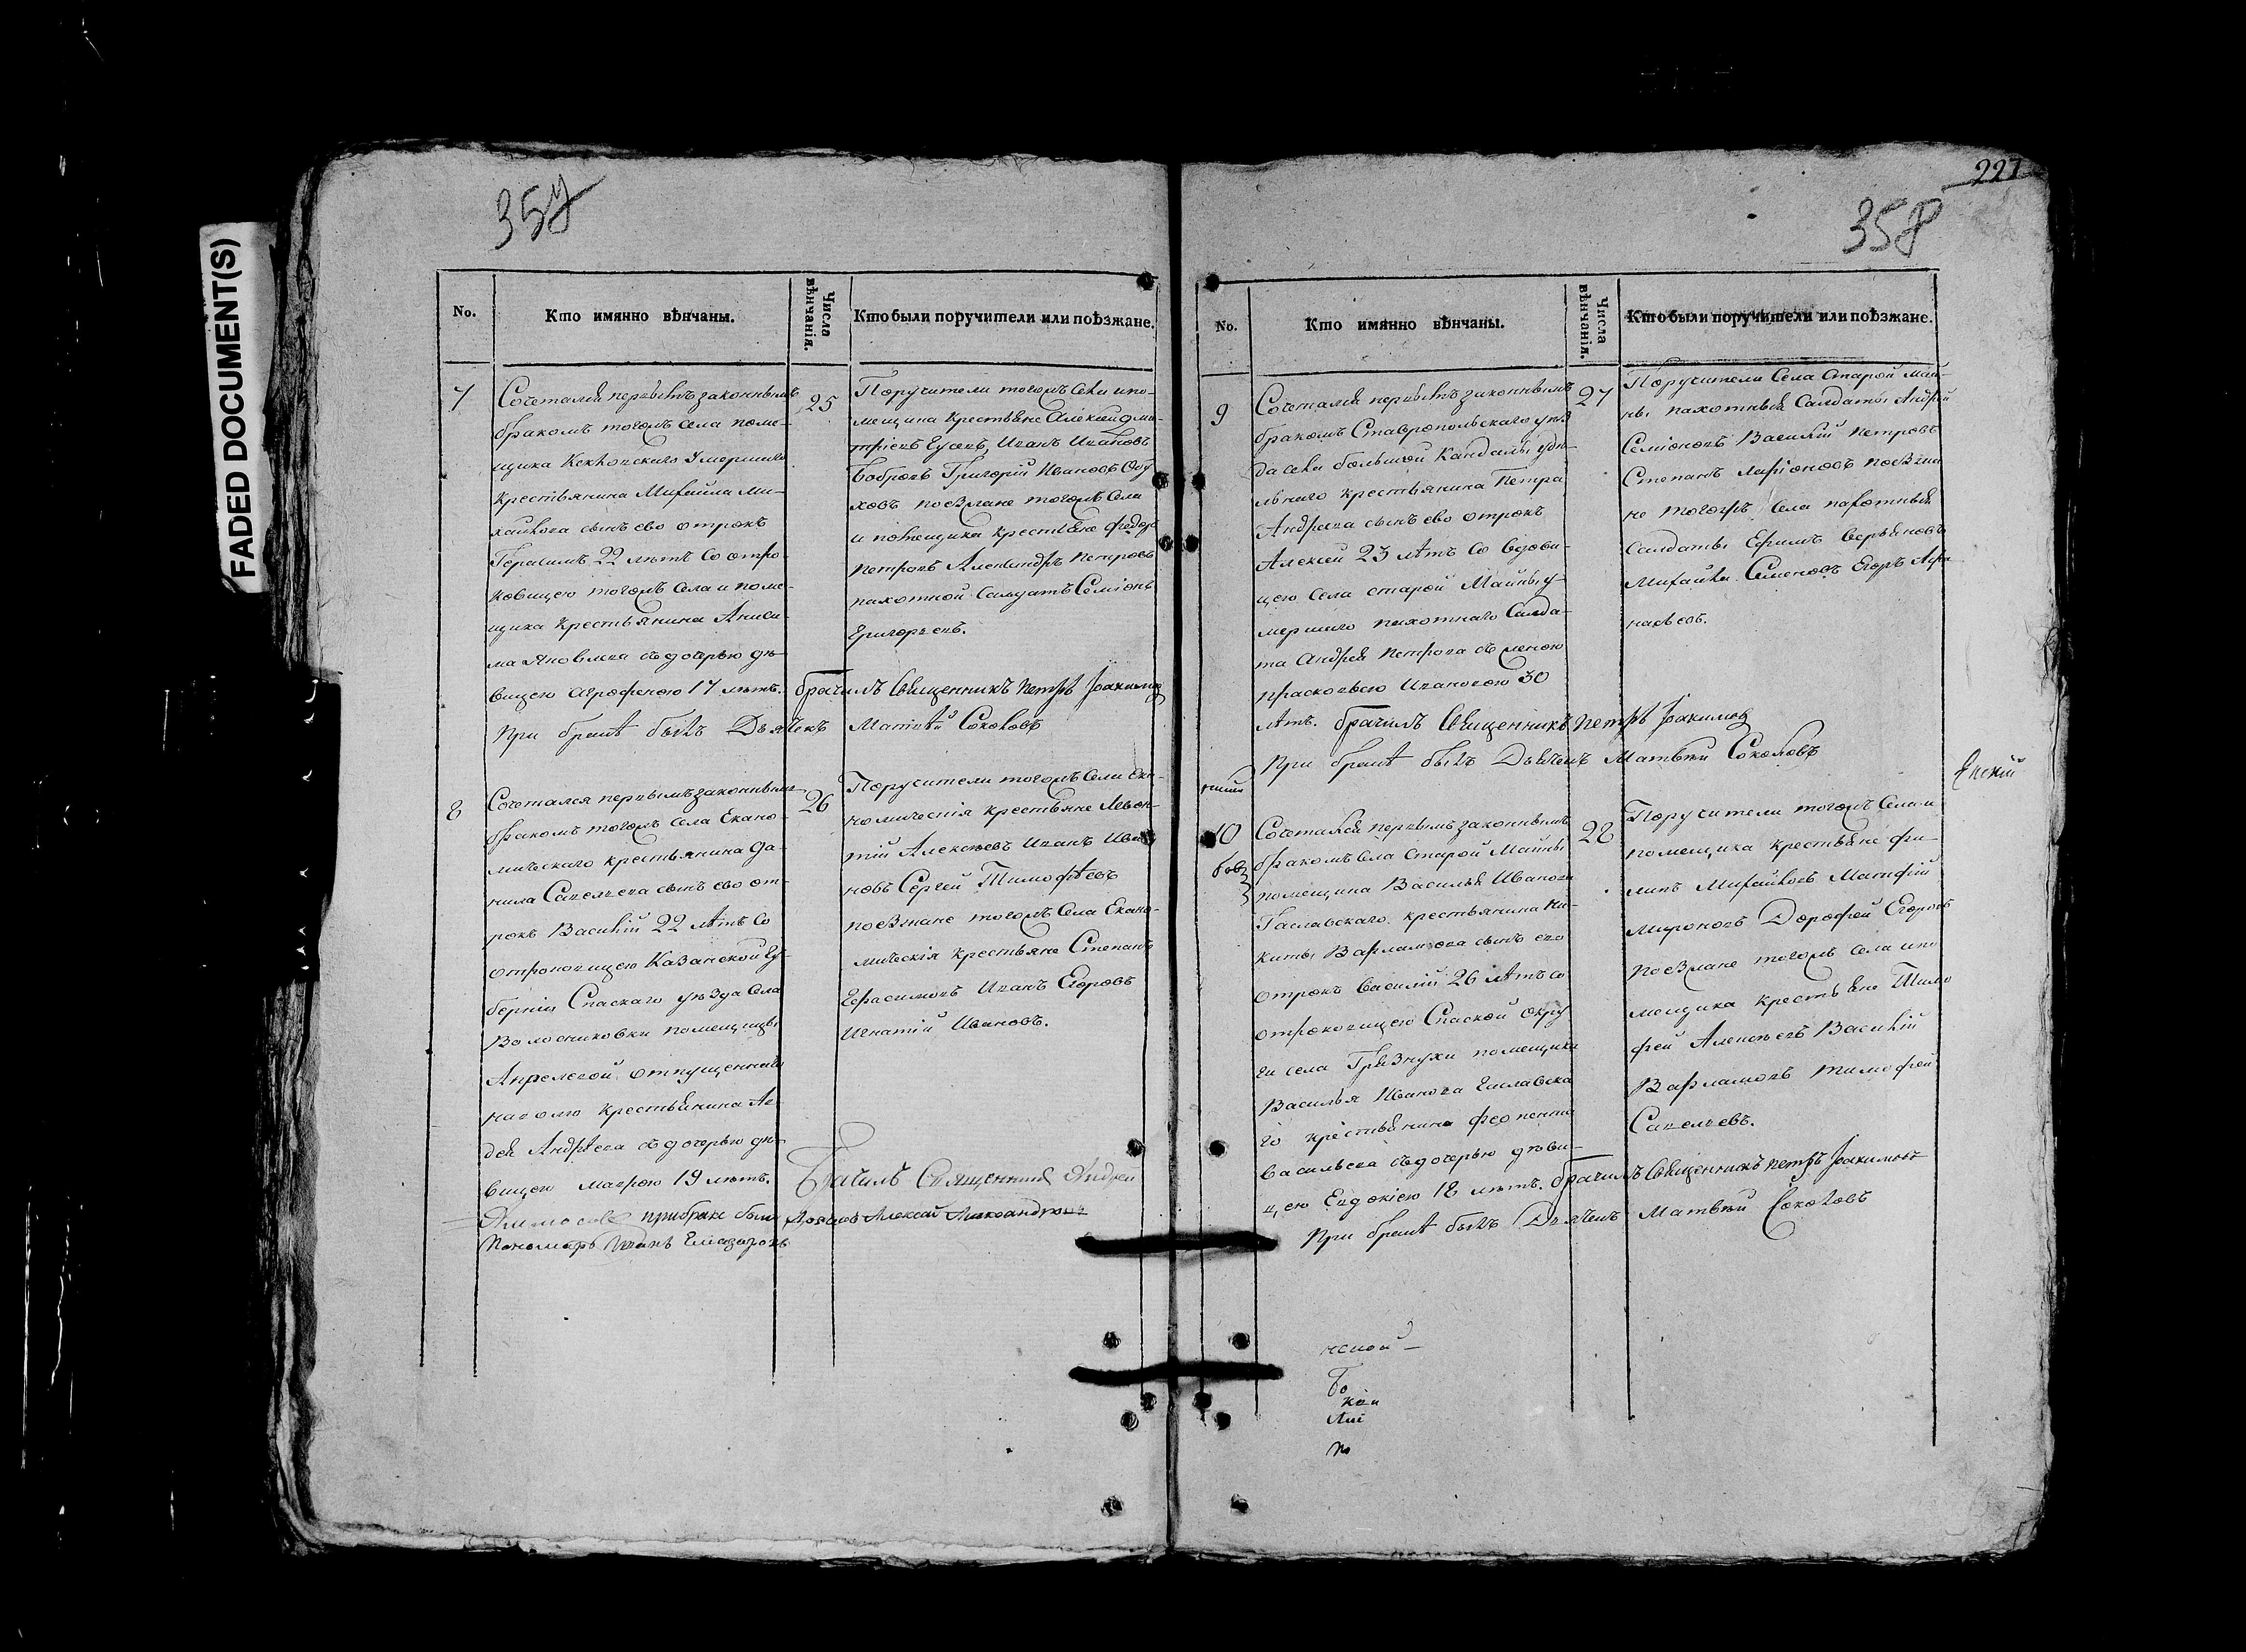 FADED DOCUMENT(S)
357
No.
Кто имянно вѣнчаны.
Числа вѣнчанія.
Кто были поручители или поѣзжане.
7
Сочетался первымъ законнымъ
бракомъ тогожъ села поме-
щика умершаго
крестьянина Михайла Ми-
хайлова сынъ ево отрокъ
Герасимъ 22 лѣтъ со отро-
ковицею тогожъ села и поме-
щика крестьянина Аниси-
ма Яковлева съ дочерью дѣ-
вицею Агрофеною 17 лѣтъ.
25
Поручители тогожъ села и по-
мещика крестьяне Алексей Дми-
тріевъ Иванъ Ивановъ
Бобровъ Григорій Ивановъ Обу
ховъ поезжане тогожъ села
и помещика крестьяне Федоръ
Петровъ Александръ Петровъ
пахотной салдатъ Семіонъ
Григорьевъ.
брачилъ священникъ Петръ Іоакимов
При браке былъ Дьячекъ Матвѣй Соколовъ
8
Сочетался первымъ законнымъ
бракомъ тогожъ села Екано-
мическаго крестьянина Да-
нила Савельева сынъ ево от-
рокъ Василій 22 лѣтъ со
отроковицею Казанской Гу-
берніи Спаскаго уѣзда села
Волосниковки помещицы
Апрелевой отпущеннаго
наволю крестьянина Ав-
дея Андрѣева съ дочерью дѣ-
вицею Маврою 19 лѣтъ.
26
Поручители тогожъ села Ека-
номическія крестьяне Леон-
тій Алексѣевъ Иванъ Ива-
новъ Сергей Тимофѣевъ
поезжане тогожъ села Екано-
мическія крестьяне Степанъ
Герасимовъ Иванъ Егоровъ
Игнатій Ивановъ.
Брачилъ Священникъ Андрей
при браке были Алексей Александровъ
Пономарь Иванъ
227
358
No.
Кто имянно вѣнчаны.
Числа вѣнчанія.
Кто были поручители или поѣзжане.
9
Сочетался первымъ законнымъ
бракомъ Ставропольскаго уѣз
да села большой Кандалы удѣ
льнаго крестьянина Петра
Андреева сынъ ево отрокъ
Алексей 23 лѣтъ со вдови-
цею села старой Майны у-
мершаго пахотнаго салда-
та Андрея Петрова съ женою
Прасковьею Ивановою 30
лѣтъ. брачилъ священникъ Петръ Іоакимов
При браке былъ Дьячекъ Матвѣй Соколовъ
27
Поручители села Старой Май-
ны пахотныя салдаты Андрей
Семіоновъ Василій Петровъ
Степанъ Ларіоновъ поезжа
не тогожъ села пахотныя
салдаты Ефимъ
Михайла Семеновъ Егоръ Афа
насьевъ.
10
Сочетался первымъ законнымъ
бракомъ села Старой Майны
помещика Василья Иванова
крестьянина Ни-
киты Варламова сынъ ево
отрокъ Василій 26 лѣтъ со
отроковицею Спаской округ
ги села Грязнухи помещика
Василья Иванова
го крестьянина
Васильева съ дочерью дѣви-
цею Евдокіею 18 лѣтъ. брачилъ священникъ Петръ Іоакимовъ
При браке былъ Дьячекъ Матвѣй Соколовъ
28
Поручители тогожъ села и
помещика крестьяне Фи-
липъ Михайловъ Матфій
Мироновъ Дорофей Егоровъ
поезжане тогожъ села и по
мещика крестьяне Тимо
фей Алексѣевъ Василій
Варламовъ Тимофей
Савельевъ.